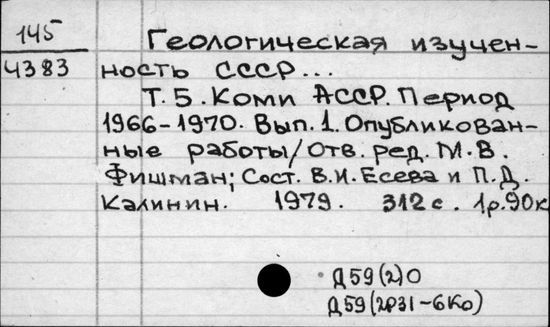 145
4383
Геологическая изучен-
ность СССР...
Т. 5. Коми АССР. Период
1966-1970. Вып. 1. Опубликован-
ные работы/Отв. ред. М. В.
Фишман; Сост. В. И. Есева и П. Д.
Калинин. 1979. 312 с. 1р. 90к
Д59(2)0
Д59(2Р31-6Ко)